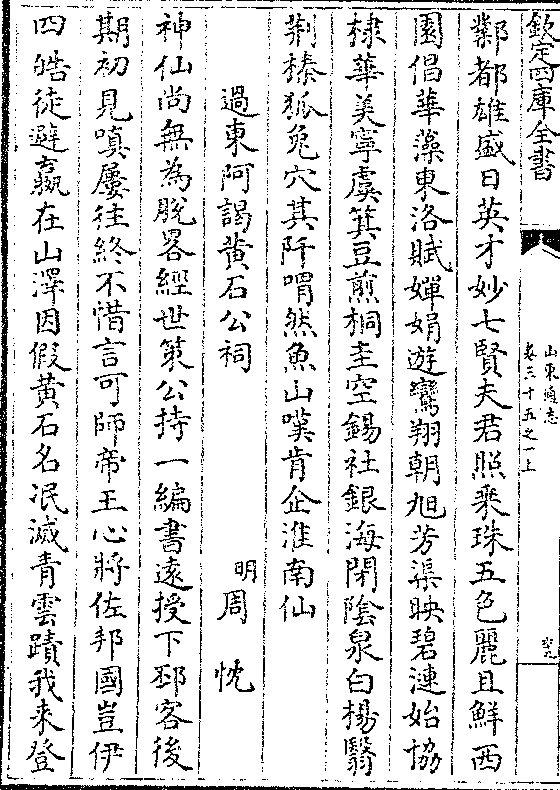 欽定四庫全書
山東通志
卷三十五之一上
鄴都雄盛日英才妙七賢夫君照乘珠五色麗且鮮西
園倡華藻東洛賦嬋娟遊鸞翔朝旭芳渠映碧漣始協
棣華美寧虞箕豆煎桐圭空錫社銀海閉陰泉白楊翳
荆榛狐兔穴其阡喟然魚山嘆肯企淮南仙
過東阿謁黄石公祠
明周忱
神仙尚無為脱畧經世策公持一編書逺授下邳客後
期初見嗔屢往終不惜言可師帝王心將佐邦國豈伊
四皓徒避嬴在山澤因假黄石名泯滅青雲蹟我来登